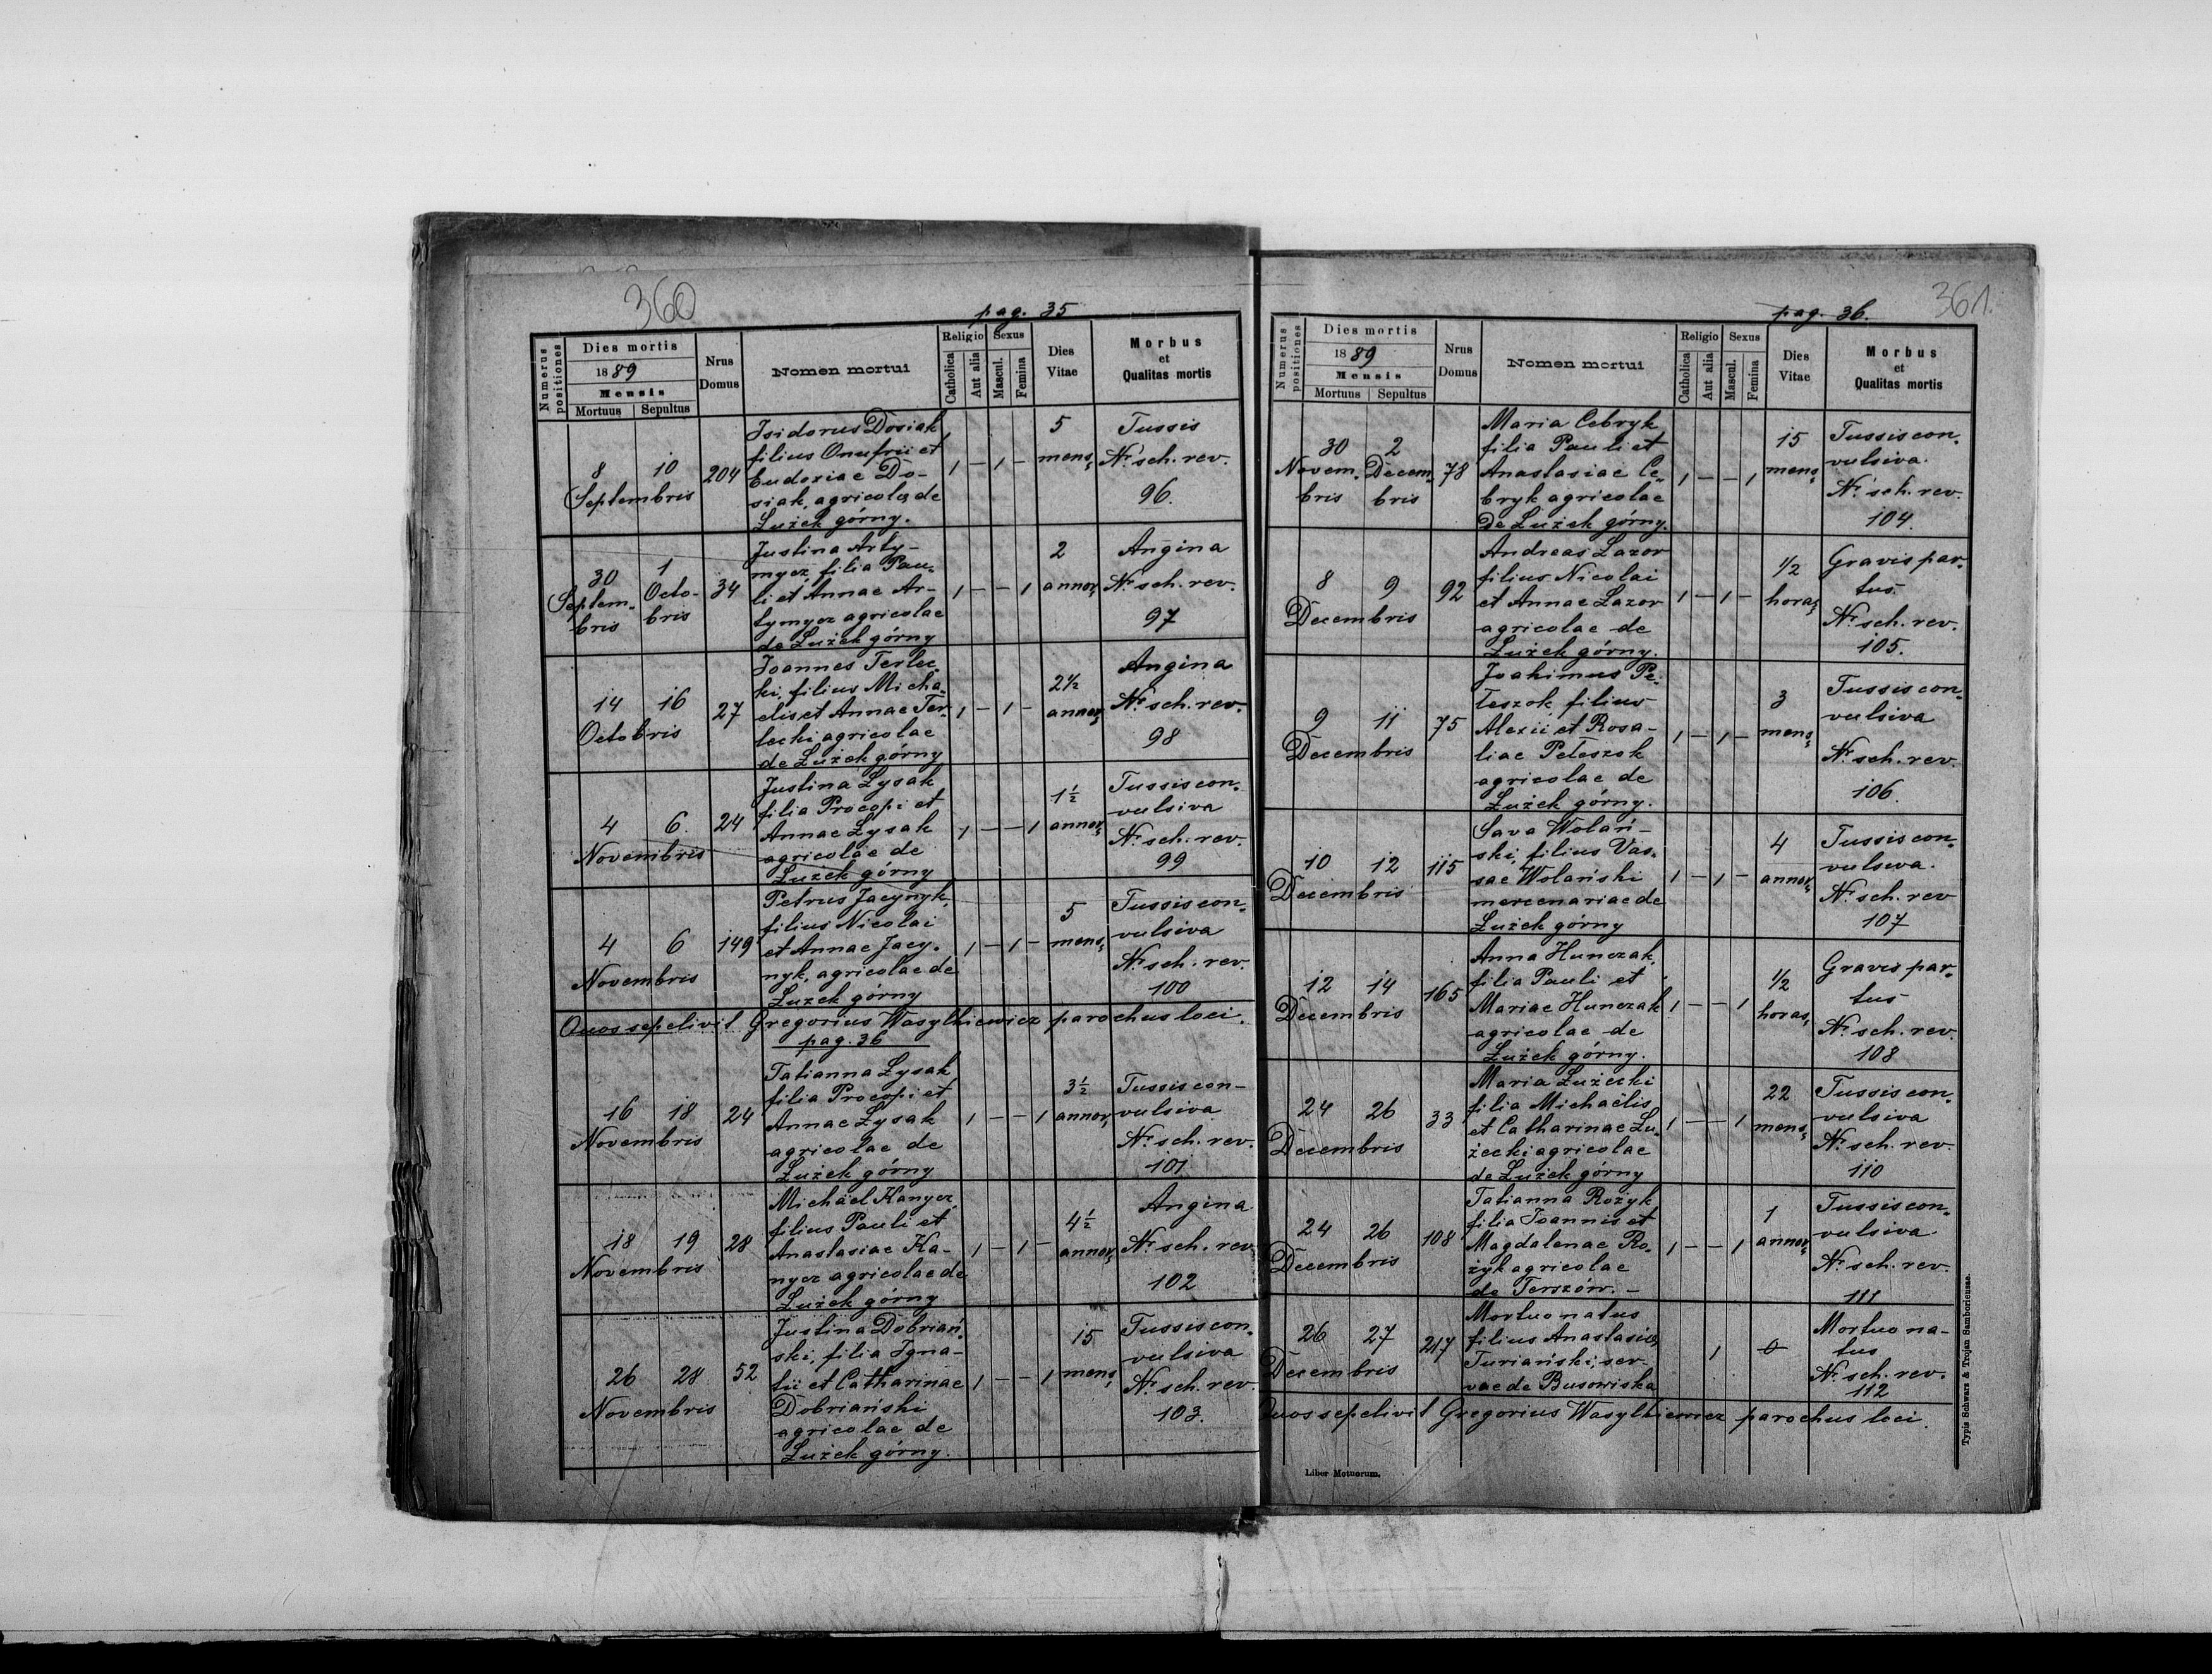 360
pag. 35
Numerus positiones
Dies mortis
1889
Mensis
Mortuus Sepultus
Nrus Domus
Nomen mortui
Religio
Catholica
Aut alia
Sexus
Mascul.
Femina
Dies Vitae
Morbus
et
Qualitas mortis
8 10 204
Septembris
Isidorus Dosiak,
filius Onufrii et
Eudoxiae Do-
siak, agricolae de
Łużek górny.
1 – 1 –
5
mens.
Tussis
Nr. sch. rev.
96.
30 1 34
Septem- Octo-
bris bris
Justina Arty-
mycz, filia Pau-
li et Annae Ar-
tymycz agricolae
de Łużek górny
1 – – 1
2
annor.
Angina
Nr. sch. rev.
97
14 16 27
Octobris
Joannes Terlec-
ki, filius Micha-
elis et Annae Ter-
lecki agricolae
de Łużek górny
1 – 1 –
2 1/2
annor.
Angina
Nr. sch. rev.
98
4 6. 24
Novembris
Justina Łysak
filia Procopi et
Annae Łysak
agricolae de
Łużek górny
1 – – 1
1 1/2
annor.
Tussis con-
vulsiva
Nr. sch. rev.
99
4 6 149
Novembris
Petrus Jacynyk,
filius Nicolai
et Annae Jacy-
nyk, agricolae de
Łużek górny
1 – 1 –
5
mens.
Tussis con-
vulsiva
Nr. sch. rev.
100
Quos sepelivit Gregorius Wasylkiewicz parochus loci.
pag. 36
16 18 24
Novembris
Tatianna Łysak
filia Procopi et
Annae Łysak
agricolae de
Łużek górny
1 – – 1
3 1/2
annor.
Tussis con-
vulsiva
Nr. sch. rev.
101
18 19 28
Novembris
Michäel Kanycz,
filius Pauli et
Anastasiae Ka-
nycz agricolae de
Łużek górny
1 – 1 –
4 1/2
annor.
Angina
Nr. sch. rev.
102
26 28 52
Novembris
Justina Dobriań-
ski, filia Igna-
tii et Catharinae
Dobriański
agricolae de
Łużek górny.
1 – – 1
15
mens.
Tussis con-
vulsiva
Nr. sch. rev.
103.
361.
pag. 36.
Numerus positiones
Dies mortis
1889
Mensis
Mortuus Sepultus
Nrus Domus
Nomen mortui
Religio
Catholica
Aut alia
Sexus
Mascul.
Femina
Dies Vitae
Morbus
et
Qualitas mortis
30 2 78
Novem- Decem-
bris bris
Maria Cebryk
filia Pauli et
Anastasiae Ce-
bryk agricolae
de Łużek górny.
1 – – 1
15
mens.
Tussis con-
vulsiva.
Nr. sch. rev.
104.
8 9 92
Decembris
Andreas Lazor
filius Nicolai
et Annae Lazor
agricolae de
Łużek górny.
1 – 1 –
1/2
horas
Gravis par-
tus.
Nr. sch. rev.
105.
9 11 75
Decembris
Joahimus Pe-
teszok filius
Alexii et Rosa-
liae Peteszok
agricolae de
Łużek górny.
1 – 1 –
3
mens.
Tussis con-
vulsiva
Nr. sch. rev.
106.
10 12 115
Decembris
Sava Wolań-
ski, filius Vas-
sae Wolański
mercenariae de
Łużek górny
1 – 1 –
4
annor.
Tussis con-
vulsiva.
Nr. sch. rev
107
12 14 165
Decembris
Anna Hunczak,
filia Pauli et
Mariae Hunczak
agricolae de
Łużek górny.
1 – – 1
1/2
horas
Gravis par-
tus
Nr. sch. rev.
108
24 26 33
Decembris
Maria Łużecki
filia Michaëlis
et Catharinae Łu-
żecki agricolae
de Łużek górny
1 – – 1
22
mens.
Tussis con-
vulsiva
Nr. sch. rev.
110
24 26 108
Decembris
Tatianna Rożyk
filia Joannis et
Magdalenae Ro-
żyk agricolae
de Terszów. –
1 – – 1
1
annor.
Tussis con-
vulsiva
Nr. sch. rev.
111
26 27 217
Decembris
Mortuo natus
filius Anastasiae
Turiański, ser-
vae de Busowiska
1
0
Mortuo na-
tus
Nr. sch. rev.
112
Quos sepelivit Gregorius Wasylkiewicz parochus loci.
Liber Motuorum.
Typis Schwarz & Trojan Samboriensae.